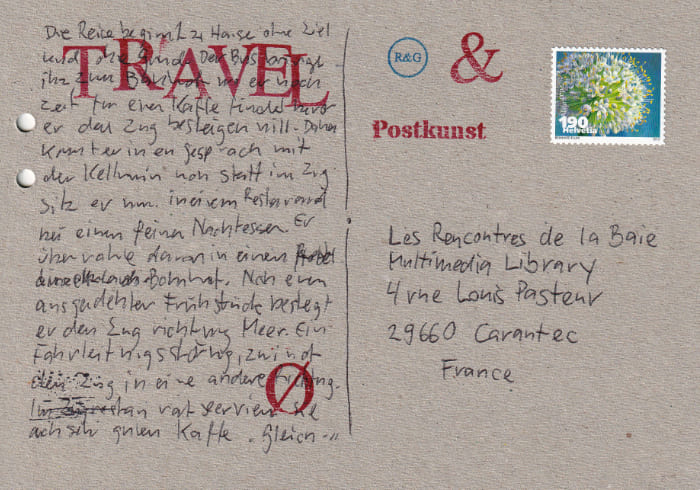 Die Reise beginnt zu Hause ohne Ziel
und ohne Grund. Der Bus
ihn zum Bahnhof wo er noch
Zeit für einen Kaffe findet bevor
er den Zug besteigen will. Daher
kommt er in en Gespräch mit
der Kellnerin von statt im Zug
sitz er nun in einem Restaurand
bei einem feinen Nachtessen. Er
dann in einem
Bahnhof. Nach
ausgedehnter Frühstück besteigt
er den Zug richtung Meer. Ein
Fahrleitnigsstörung, zwingt
den Zug in eine andere Richtung.
servier sie
auch sehr guten Kaffe. Gleich
TRAVEL
Ø
R&G
&
Postkunst
190
Helvetia
Les Rencontres de la Baie
Multimedia Library
4 rue Louis Pasteur
29660 Carantec
France